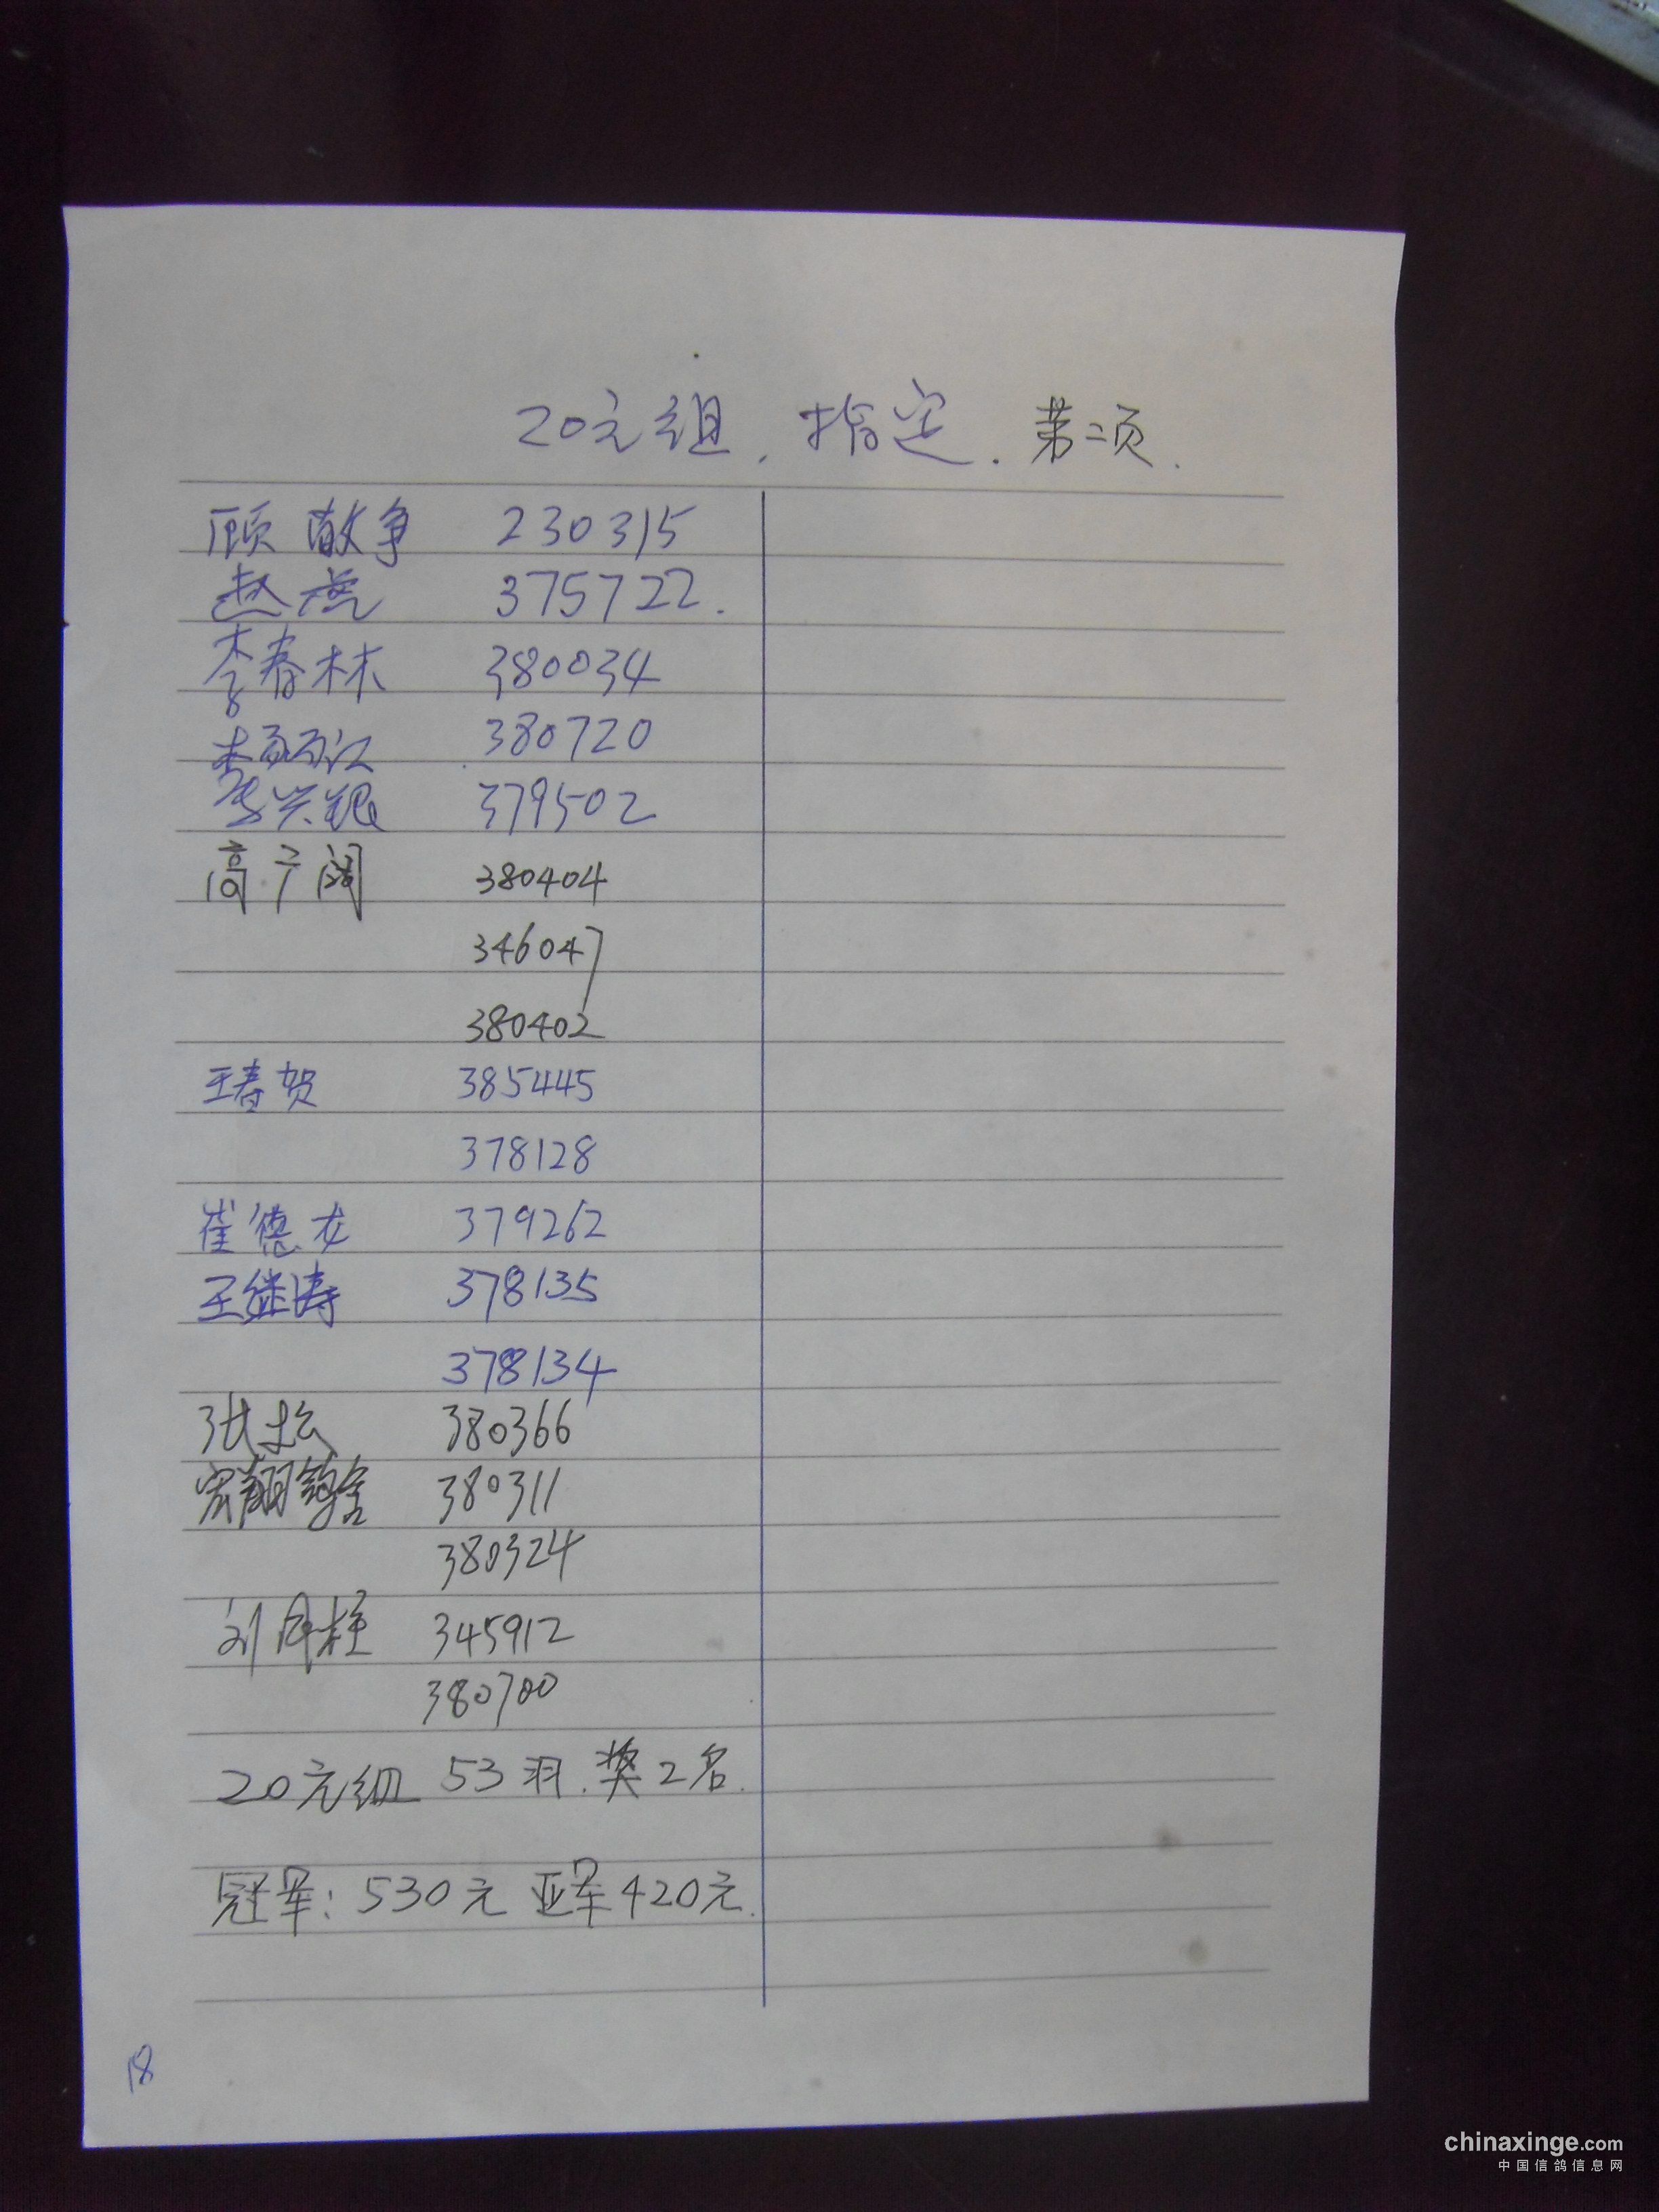 20元组.指定.第二页.
顾敬争 230315
赵虎 375722.
李春林 380034
李丽江 380720
李兴银 379502
高广阔 380404
346047
380402
王春贺 385445
378128
崔德龙 379262
王继涛 378135
378134
张松 380366
宏翔鸽舍 380311
380324
刘月柱 345912
380700
20元组 53羽.奖2名.
冠军:530元 亚军420元.
18
chinaxinge.com
中国信鸽信息网